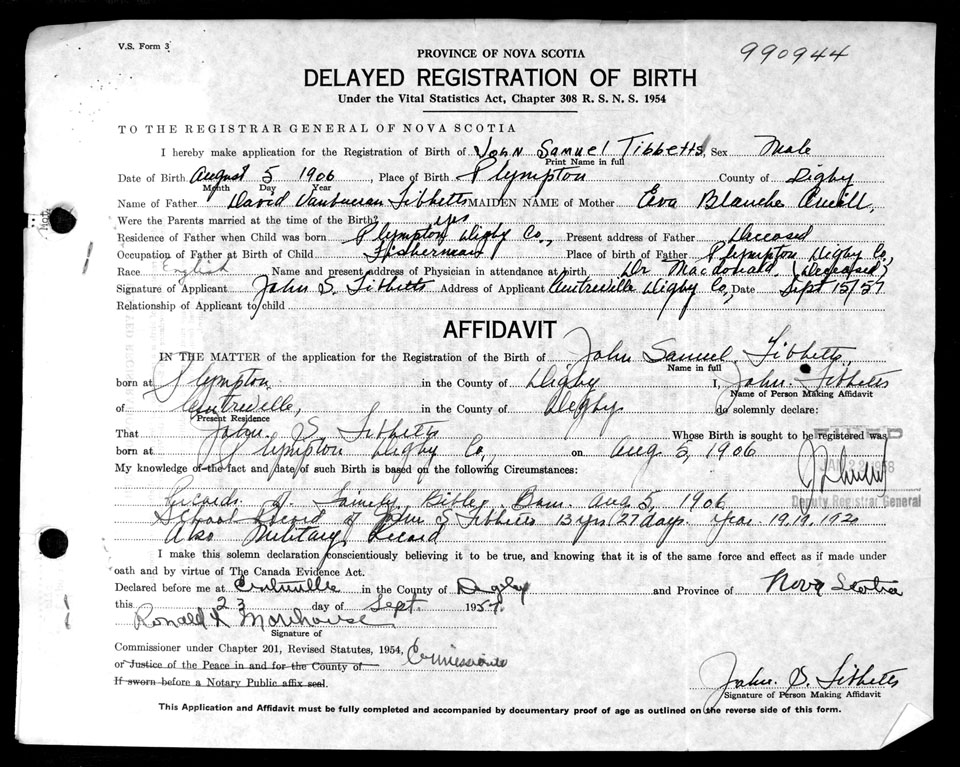 V.S. Form 3
990944
PROVINCE OF NOVA SCOTIA
DELAYED REGISTRATION OF BIRTH
Under the Vital Statistics Act, Chapter 308 R. S. N. S. 1954
TO THE REGISTRAR GENERAL OF NOVA SCOTIA
I hereby make application for the Registration of Birth of John Samuel Tibbetts, Sex Male
Print Name in full
Date of Birth August 5 1906, Place of Birth Plympton County of Digby
Month Day Year
Name of Father David Tibbetts MAIDEN NAME of Mother Eva Blanche
Were the Parents married at the time of the Birth? yes
Residence of Father when Child was born Plympton Digby Co., Present address of Father Deceased
Occupation of Father at Birth of Child Fisherman Place of birth of Father Plympton Digby Co.,
Race English Name and present address of Physician in attendance at birth Dr Macdonald (Deceased)
Signature of Applicant John S. Tibbetts Address of Applicant Centreville Digby Co., Date Sept 15/57
Relationship of Applicant to child
AFFIDAVIT
IN THE MATTER of the application for the Registration of the Birth of John Samuel Tibbetts,
Name in full
born at Plympton in the County of Digby I, John. Tibbetts
Name of Person Making Affidavit
of Centreville, in the County of Digby do solemnly declare:
Present Residence
That John. S Tibbetts Whose Birth is sought to be registered was
born at Plympton Digby Co, on Aug 5, 1906
FILED
My knowledge of the fact and date of such Birth is based on the following Circumstances:
Deputy Registrar General
Records of Family Bible, Born. Aug 5, 1906
School Record of John S Tibbetts 13 yrs (27 days. Year 1919. 1920
Also Military Record
I make this solemn declaration conscientiously believing it to be true, and knowing that it is of the same force and effect as if made under
oath and by virtue of The Canada Evidence Act.
Declared before me at Centreville in the County of Digby and Province of Nova Scotia
this 23 day of Sept. 1957.
Ronald Morehouse
Signature of
Commissioner under Chapter 201, Revised Statutes, 1954, Commissioner
or Justice of the Peace in and for the County of
If sworn before a Notary Public affix seal.
John. S. Tibbetts
Signature of Person Making Affidavit
This Application and Affidavit must be fully completed and accompanied by documentary proof of age as outlined on the reverse side of this form.